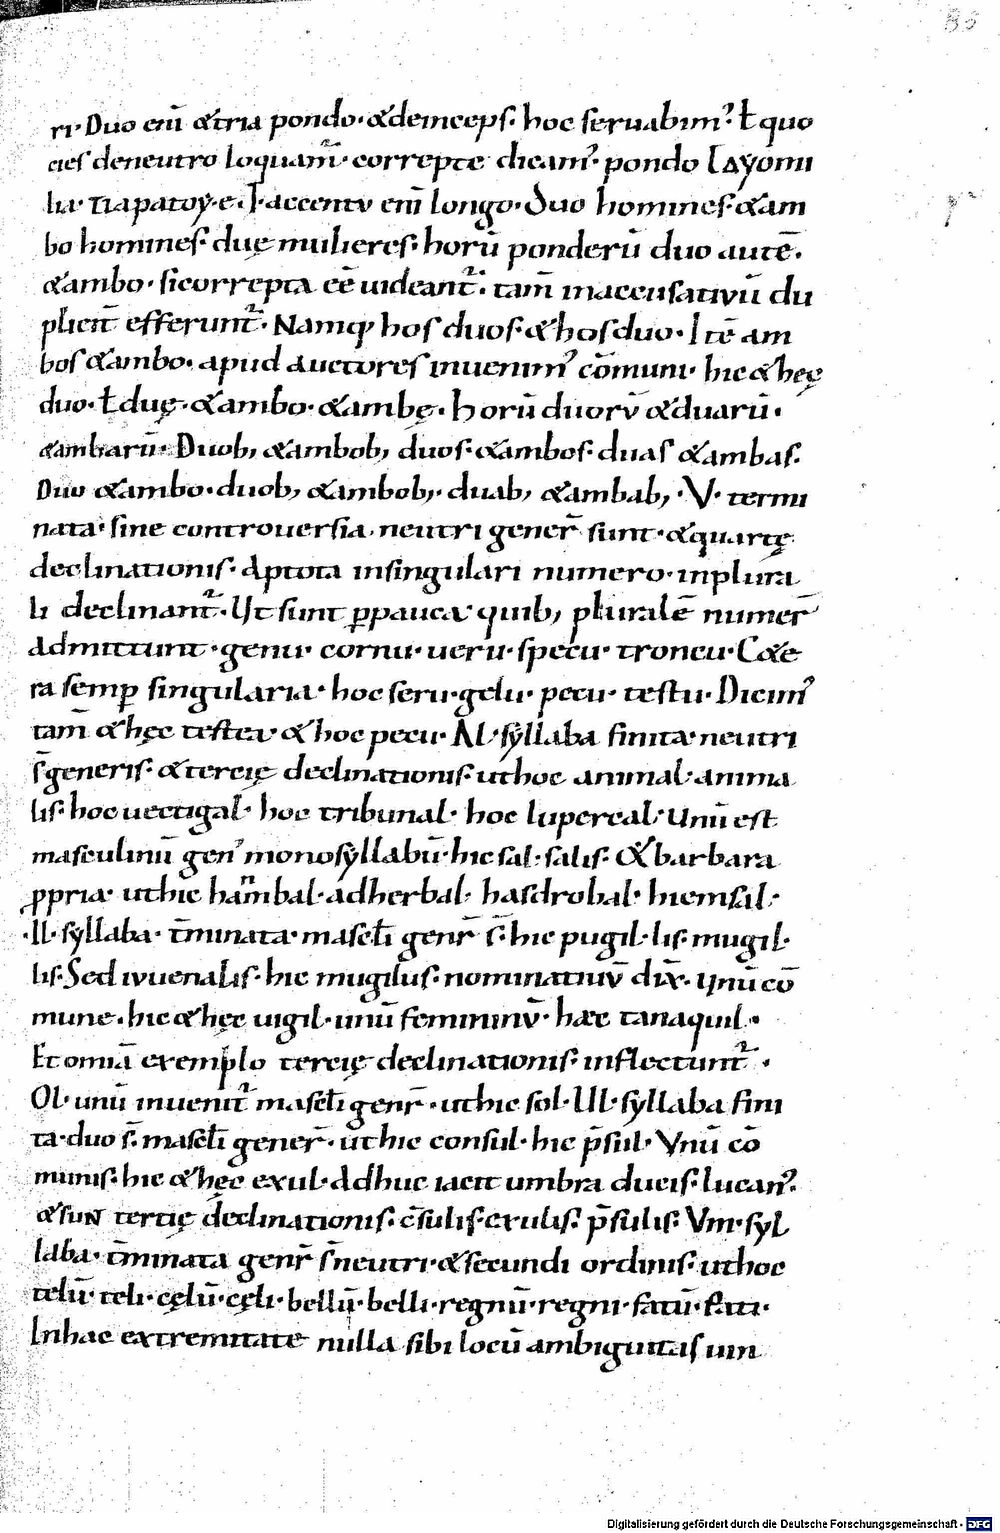 85
ri· Duo enī &tria pondo· &deinceps· hoc seruabim᾽· ł quo
cies deneutro loquam̄· correpte dicam᾽· pondo
lia· παρατογ· e· accentu enī longo· Duo homines· &am
bo homines· duę mulieres· horū ponderū duo autē·
&ambo· sicorrepta eē uideant᷑· tam̄ inaccusatiuū du
plicit̄ efferunt᷑· Namq; hos duos· &hos duo· Itē am
bos &ambo· apud auctores inuenim᾽ cōmuni· hic &hęc
duo· ł duę· &ambo· &ambę· horū duorū &duarū·
&ambarū· Duob; &ambob; duos· &ambos· duas &ambas·
Duo &ambo· duob; &ambob;· duab; &ambab;· V· termi
nata· sine controuersia· neutri gener̄ sunt· &quartę
declinationis· Aptota insingulari numero· inplura
li declinant᷑· Ut sunt ꝑpauca quib; pluralē numer̄
admittunt· genu· cornu· ueru· specu· troneu· C&e
ra semꝑ singularia· hoc seru· gelu· pecu· testu· Dicim᾽
tam̄ &hęc testea &hoc pecu· Al· syllaba finita neutri
s̄ generis· &tercię declinationis· uthoc animal· anima
lis· hoc uectigal· hoc tribunal· hoc lupercal· Unū est
masculinū gen᾽ monosyllabū· hic sal· salis· &barbara
ꝓpria· uthic hannibal· adherbal· hasdrobal· hiemsal·
·Il· syllaba· t̄minata· mascłi genr̄ s̄· hic pugil· lis· mugil·
lis· Sed iuuenalis· hic mugilus· nominatiuū dix̄· Unū cō
mune· hic &hęc uigil· unū femininū· hæc tanaquil·
Et omīa exemplo tercię declinationis· inflectunt᷑·
Ol· unū inuenit᷑ mascłi genr̄· uthic sol· Ul· syllaba fini
ta· duo s̄· mascłi gener̄· uthic consul· hic p̄sul· Vnū cō
munis· hic &hęc exul· Adhuc iacit umbra ducis· lucan᾽·
&suN tertię declinationis· c̄sulis· exulis· p̄sulis· Vm· syl
laba· t̄minata genr̄ s̄ neutri· &secundi ordinis· uthoc
telū· teli· cęlū· cęli· bellū· belli· regnū· regni· fatū· fati·
Inhac extremitate nulla sibi locū ambiguitas uin
Digitalisierung gefördert durch die Deutsche Forschungsgemeinschaft - DFG